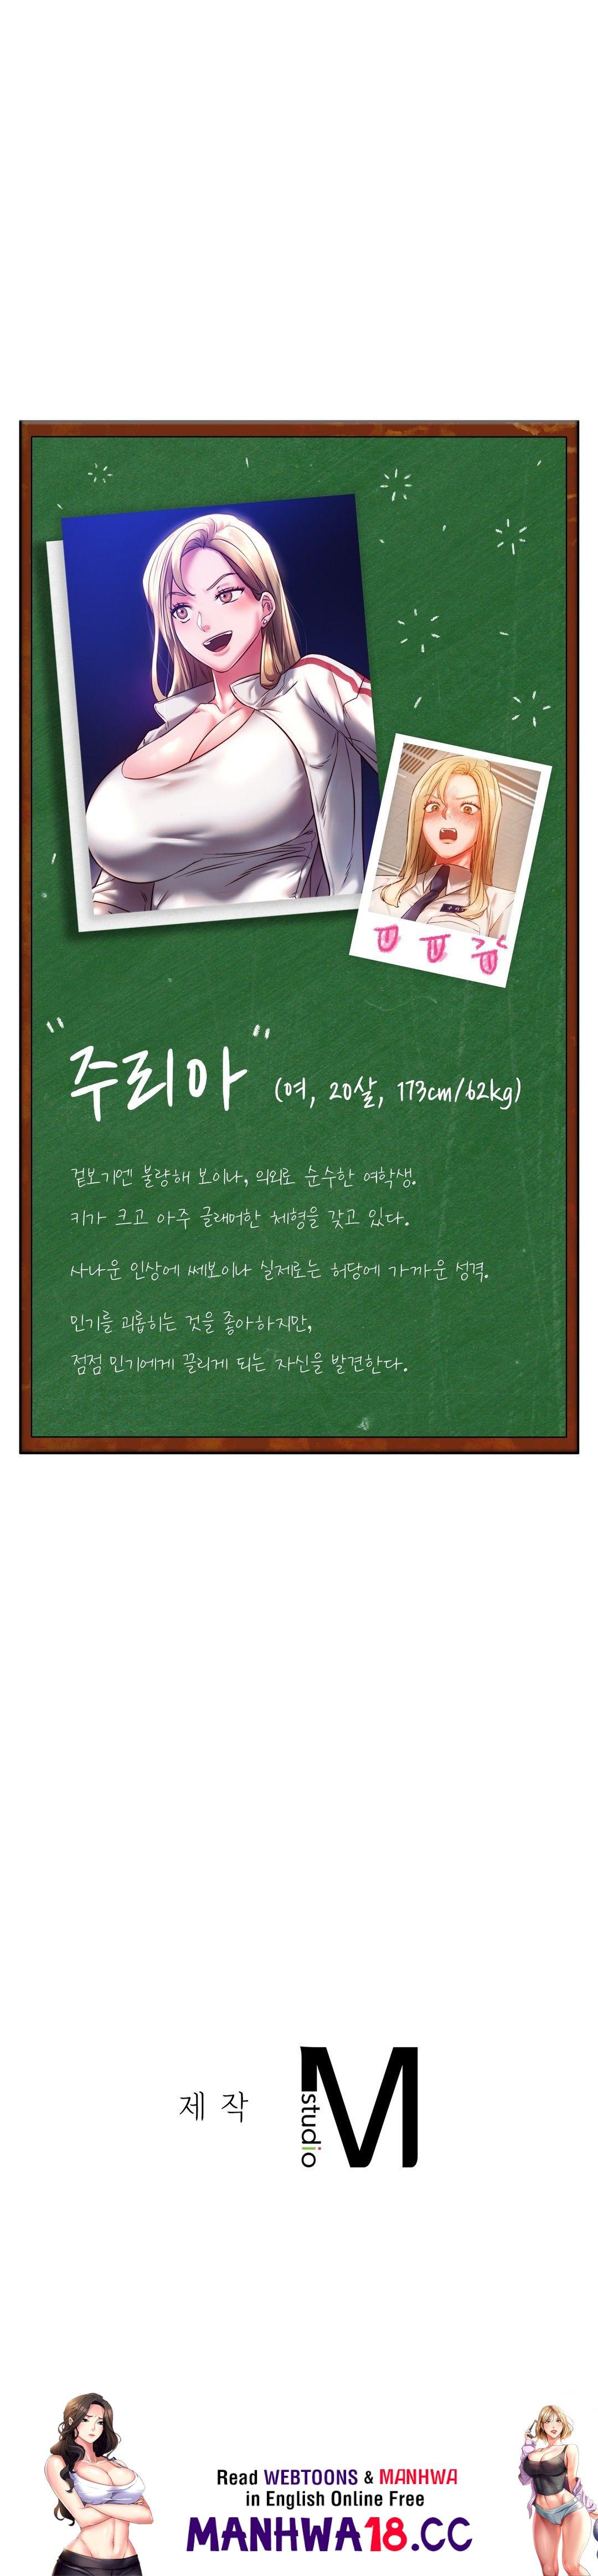 ㅁㅁㅎ
"주리아" (여, 20살, 173cm/62kg)
겉보기엔 불량해 보이나, 의외로 순수한 여학생.
키가 크고 아주 글래머한 체형을 갖고 있다.
사나운 인상에 쎄보이나 실제로는 허당에 가까운 성격.
민기를 괴롭히는 것을 좋아하지만,
점점 민기에게 끌리게 되는 자신을 발견한다.
제 작
M studio
Read WEBTOONS & MANHWA
in English Online Free
MANHWA18.CC